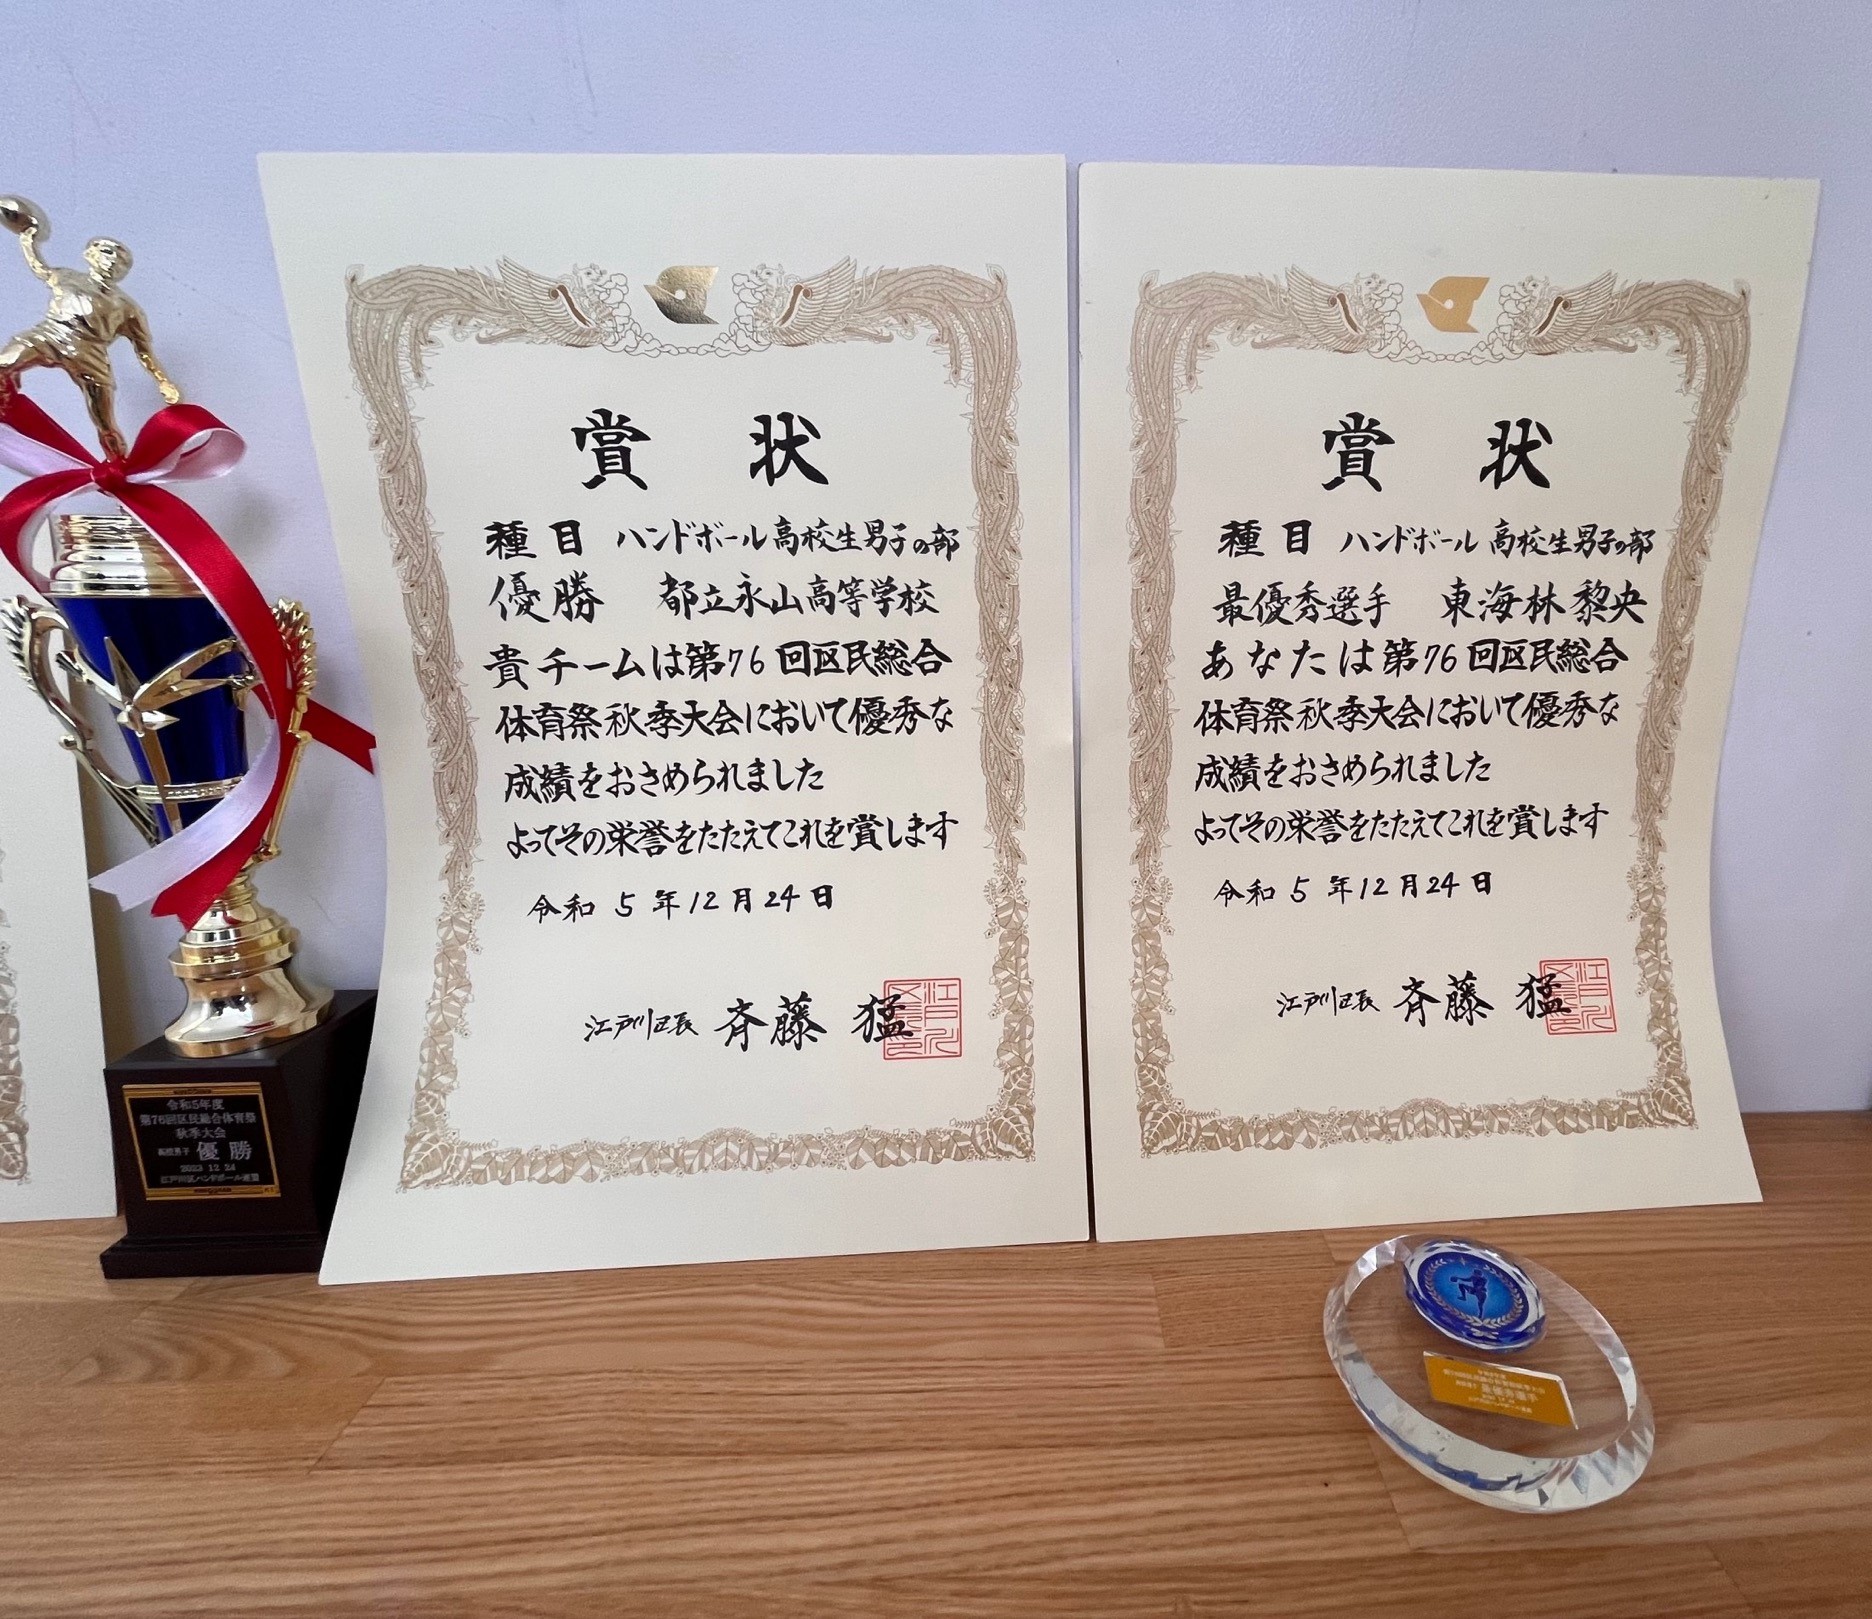 賞状
種目 ハンドボール高校生男子の部
優勝 都立永山高等学校
貴チームは第76回区民総合
体育祭秋季大会において優秀な
成績をおさめられました
よってその栄誉をたたえてこれを賞します
令和5年12月24日
江戸川区長 斉藤 猛
賞状
種目 ハンドボール高校生男子の部
最優秀選手 東海林黎央
あなたは第76回区民総合
体育祭秋季大会において優秀な
成績をおさめられました
よってその栄誉をたたえてこれを賞します
令和5年12月24日
江戸川区長 斉藤 猛
令和5年度
第76回区民総合体育祭
秋季大会
高校男子 優勝
2023 12 24
江戸川区ハンドボール連盟
最優秀選手